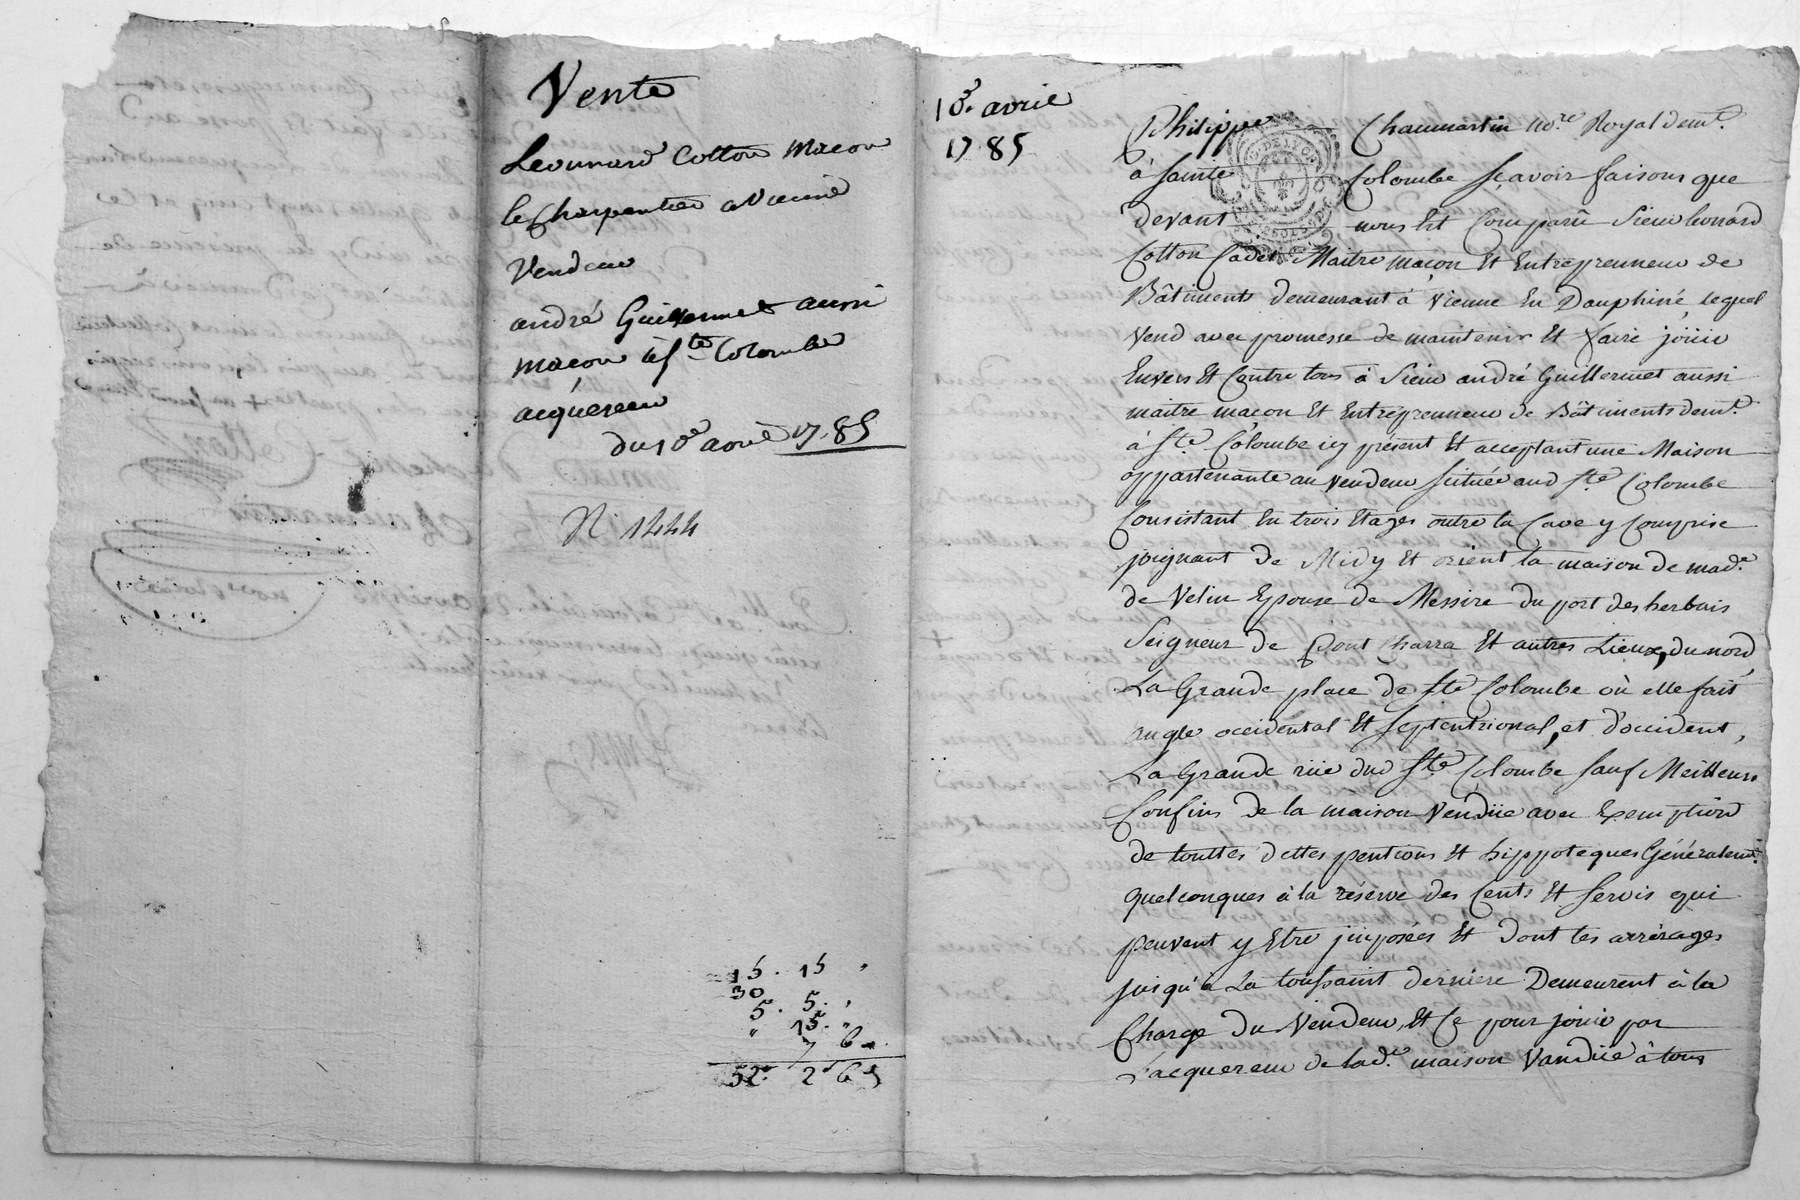 Vente
Leonnard Cotton Macon
le Charpentier a Vienne
Vendeur
andré Guillermet aussi
maçon à Ste Colombe
acquereur
du 10e avril 1785
N 1444
15. 15 "
30
5. 5. "
" 15. "
7 6
52. 2 6
10e avril
1785
Philippe Chaumartin nore Royal demt
à Sainte Colombe sçavoir faisons que
devant nous Est Comparu Sieur leonard
Cotton Cadet Maitre maçon Et Entreprenneur de
Bâtiments demeurant à Vienne En Dauphiné, lequel
vend avec promesse de maintenir Et faire joüir
Envers Et Contre tous à Sieur andré Guillermet aussi
maitre macon Et Entreprenneur de Bâtiments demt
à Ste Colombe icy présent Et acceptant une Maison
appartenante au vendeur scituée aud Ste Colombe
Consistant En trois Etages outre la Cave y Comprise
joignant de Midy Et orient la maison de made
de Velin Epouse de Messire du port des herbais
Seigneur de Pont Charra Et autres Lieux, du nord
La Grande place de Ste Colombe où elle fait
angle occidental Et Septentrional, et d'occident,
La Grande rüe dud Ste Colombe sauf Meilleurs
Confins de la maison Vendüe avec Exemption
de touttes dettes pentions Et hippoteques Généralemt
quelconques à la réserve des Cents Et Servis qui
peuvent y Etre imposées Et dont les arrérages
jusqu'à La toussaint derniere Demeurent à la
Charge du Vendeur, Et Ce pour jouir par
L'acquereur de lade maison Vandüe à tous